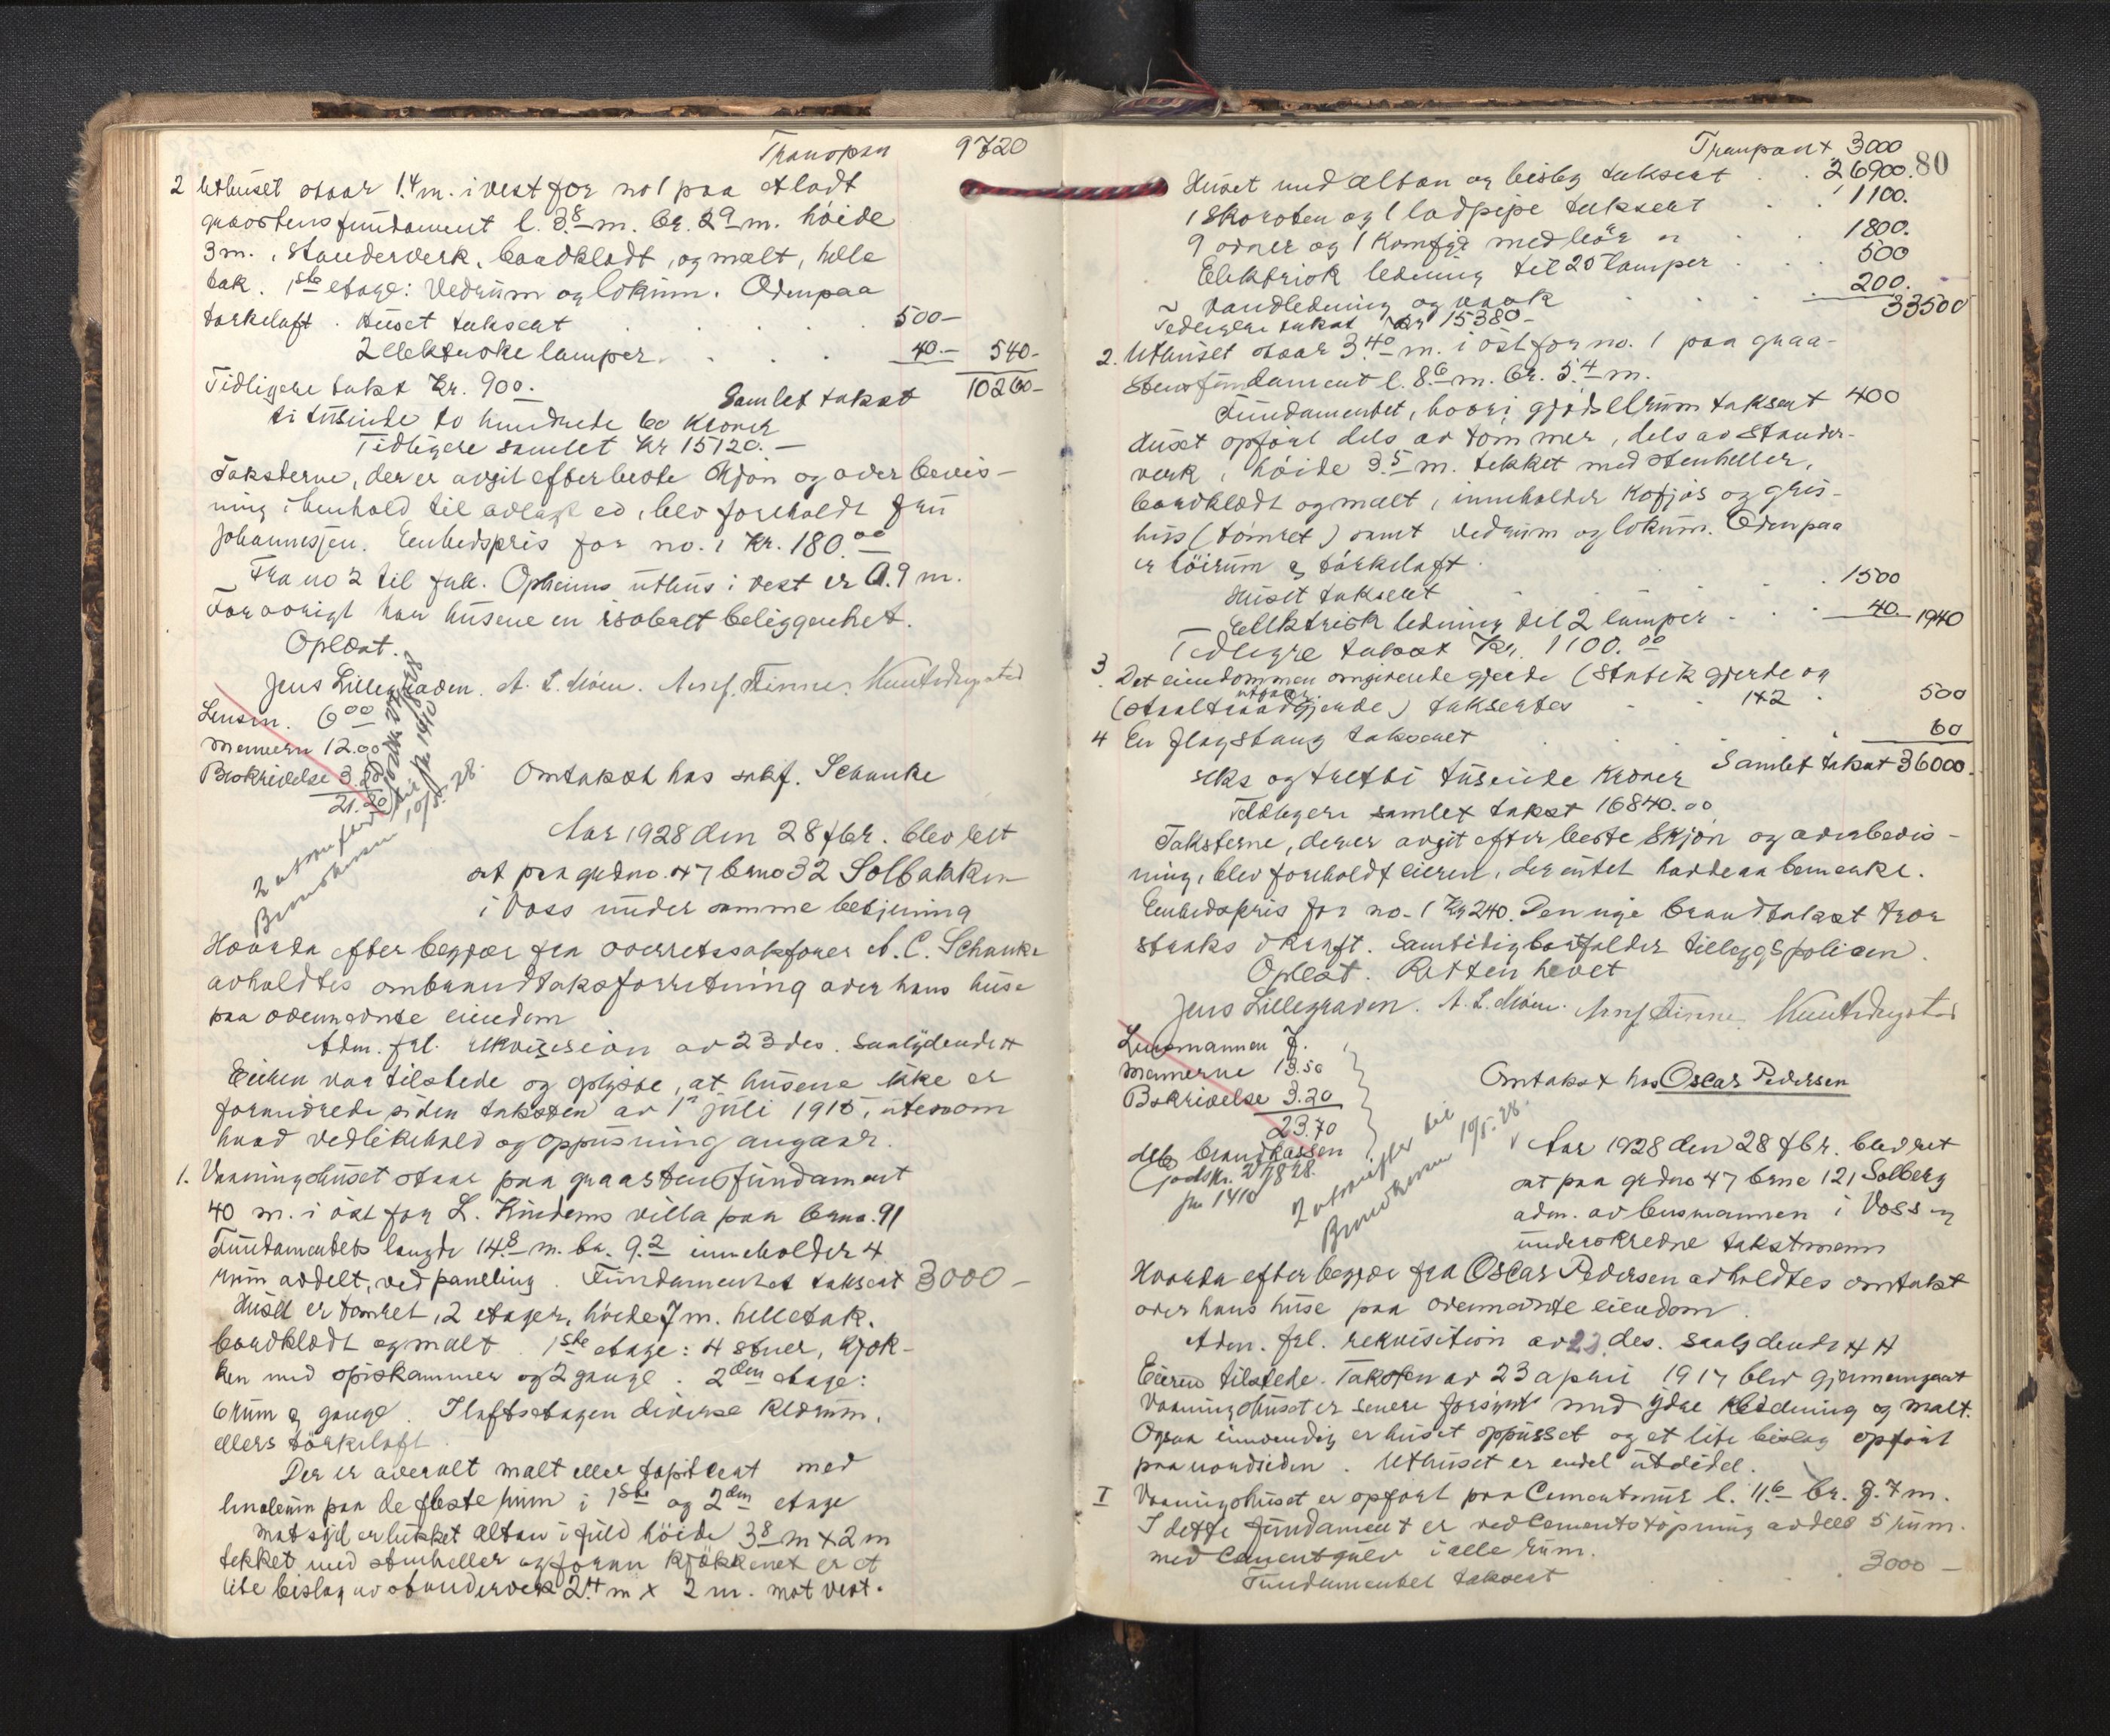 Transport 9720
2 Uthuset staar 1.4 m. i vest for no 1 paa etladt
graastensfundament l. 3.8 m. br. 2.9 m. høide
3 m. , Standerverk, bordklædt, og malt, helle
tak. 1ste etage: Vedrum og lokum. Ovenpaa
tørkeloft. Huset taksert . . . . 500 –
2 elektriske lamper . . . 40. – 540 -
Tidligere takst Kr. 900. – Samlet takst 10260 –
ti tusinde to hundrede 60 Kroner
Tidligere samlet Kr 15120. –
Taksterne, der er avgit efter beste skjøn og overbevis-
ning i henhold til avlagt ed, blev foreholdt fru
Johannesjen. Enhedspris for no. 1 Kr. 180.00
– Fra no 2 til frk. Opheims uthus i vest er 0.9 m.
Forøvrigt har husene en isolert beliggenhet.
Oplæst.
Jens Lillegraven. A. L. Moen. Arnf. Finne.
Lensm. 6.00
Mænnene 12.00
Beskrivelse 3.20
21.20
2 utskrifter til
Brandkassen 10/5. 28.
Omtakst hos sakf. Schanke
Aar 1928 den 28 fbr. blev ret
sat paa grdno. 47 brno 32 Solbakken
i Voss under samme betjening
Hvorda efter begjær fra overretssakfører A. C. Schanke
avholdtes ombrandtaksforretning over hans huse
paa ovennævnte eiendom
Adm. frl. rekvisision av 23 des. saalydende H
Eieren var tilstede og oplyste, at husene ikke er
forandrede siden taksten av 1 juli 1915, utenom
hvad vedlikehold og oppusning angaar.
1. Vaaningshuset staar paa graastensfundament
40 m. i øst for L. Kindems villa paa brno. 91
Fundamentets længde 14.8 m. br. 9.2 inneholder 4
rum avdelt, ved paneling. Fundamentet taksert 3000 –
Huset er tømret, 2 etager, høide 7 m. helletak.
bordklædt og malt. 1ste etage: 4 stuer, kjøk-
ken med spiskammer og 2 gange. 2den etage:
6 rum og gange. I loftsetagen diverse klærum,
ellers tørkeloft
Der er overalt malt eller tapisert med
linoleum paa de fleste rum i 1ste og 2den etage
Mot syd er lukket altan i fuld høide 3.8 m x 2 m
tekket med stenheller og foran kjøkkenet er et
lite bislag av standerverk 2.4 m x 2 m. mot vest.
Transport 3000
80
Huset med altan og bislag taksert . . 26900.
1 Skorsten og 1 ladpipe taksert . . 1100.
9 ovner og 1 komfyr med rør . . 1800.
Elektrisk ledning til 25 lamper . . 500
Vandledning og vask . . . 200. 33500
Tidligere takst Kr 15380 –
2. Uthuset staar 3.40 m. i øst for no. 1 paa graa-
stensfundament l. 8.6 m. br. 5.4 m.
Fundamentet, hvori gjødselrum taksert 400
Huset opført dels av tømmer, dels av stander-
verk, høide 3.5 m. tekket med stenheller,
bordklædt og malt, inneholder kofjøs og gris-
hus (tømret) samt vedrum og lokum. Ovenpaa
er høirum og tørkeloft.
Huset taksert . . . 1500
– Elektrisk ledning til 2 lamper . . 40. 1940
Tidligre takst Kr. 1100.00
3. Det eiendommen omgivende gjerde (Stakit gjerde og
(staaltraadgjerde) utgaar. taksertes . . 142 . 500
4 En flagstang taksert . . . 60
Samlet takst 36000.
seks og tretti tusinde kroner
Tidligere samlet takst 16840.00
Taksterne, der er avgit efter beste skjøn og overbevis-
ning, blev foreholdt eieren, der intet hadde at bemerke.
Enhedspris for no. 1 Kr 240. Den nye brandtakst trær
straks i kraft. Samtidig bortfalder tillegspolicen.
Oplæst. Retten hevet
Jens Lillegraven. A. L. Moen. Arnf. Finne.
Lensmannen 7.
Mænnerne 13.50
Beskrivelse 3.20
23.70
deb brandkassen
Godskr. 2/7 8 28.
jnr 1410
2 utskrifter til
Brandkassen 10/5. 28.
Omtakst hos Oscar Pedersen
Aar 1928 den 28 fbr. blev ret
sat paa grdno 47 brno 121 Solberg
adm. av lensmannen i Voss og
underskrevne takstmenn
Hvorda efter begjær fra Oscar Pedersen avholdtes omtakst
over hans huse paa ovennævnte eiendom.
Adm. frl. rekvisition av 23 des. saalydende H H
Eieren tilstede. Taksten av 23 april 1917 blev gjennemgaat
Vaaningshuset er senere forsynt med ydre klædning og malt.
Ogsaa innvendig er huset oppusset og et lite bislag opført
paa nordsiden. Uthuset er endel utvidet.
I Vaaningshuset er opført paa Cementmur l. 11.6 br. 8.7 m.
I dette fundament er ved Cementstøpning avdelt 5 rum.
med Cementgulv i alle rum.
Fundamentet taksert . . . 3000 –